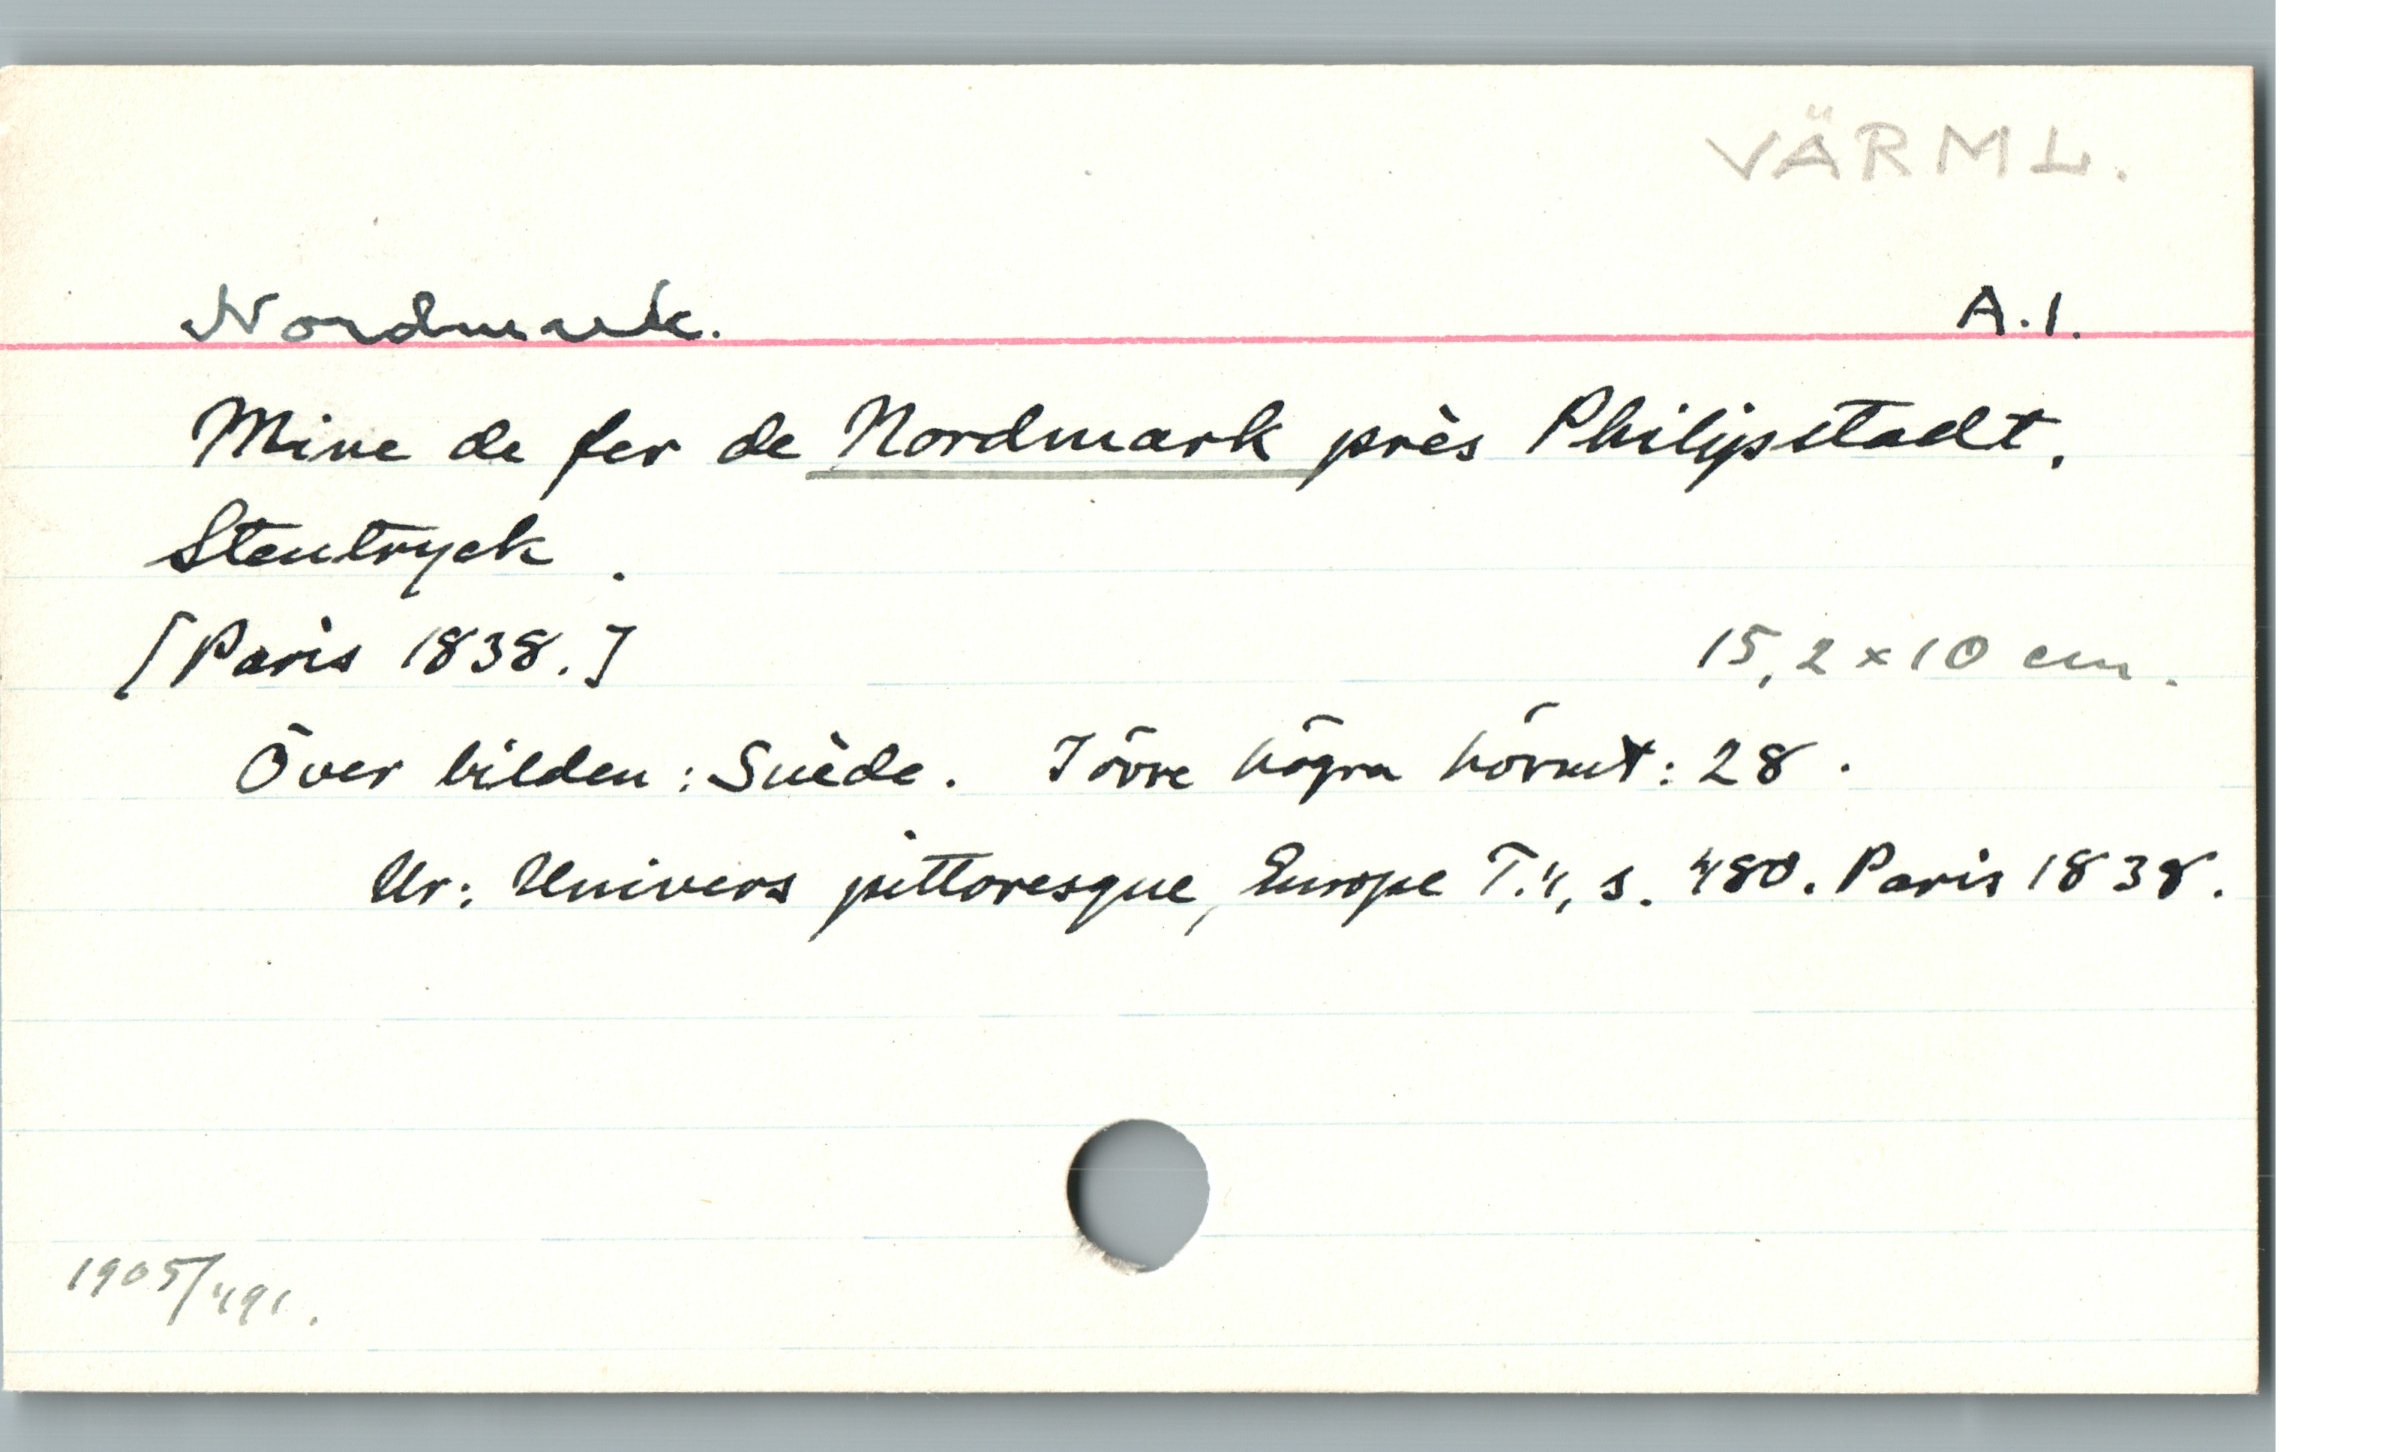 VÄRML.
Nordmark. A.1.
Mine de fer de Nordmark près Philipstadt.
Stentryck.
[Paris 1838.] 15,2 x 10 cm.
Över bilden: Suède. I övre högra hörnet: 28.
Ur: Univers pittoresque, Europe T.4, s. 480. Paris 1838.
1905/491.